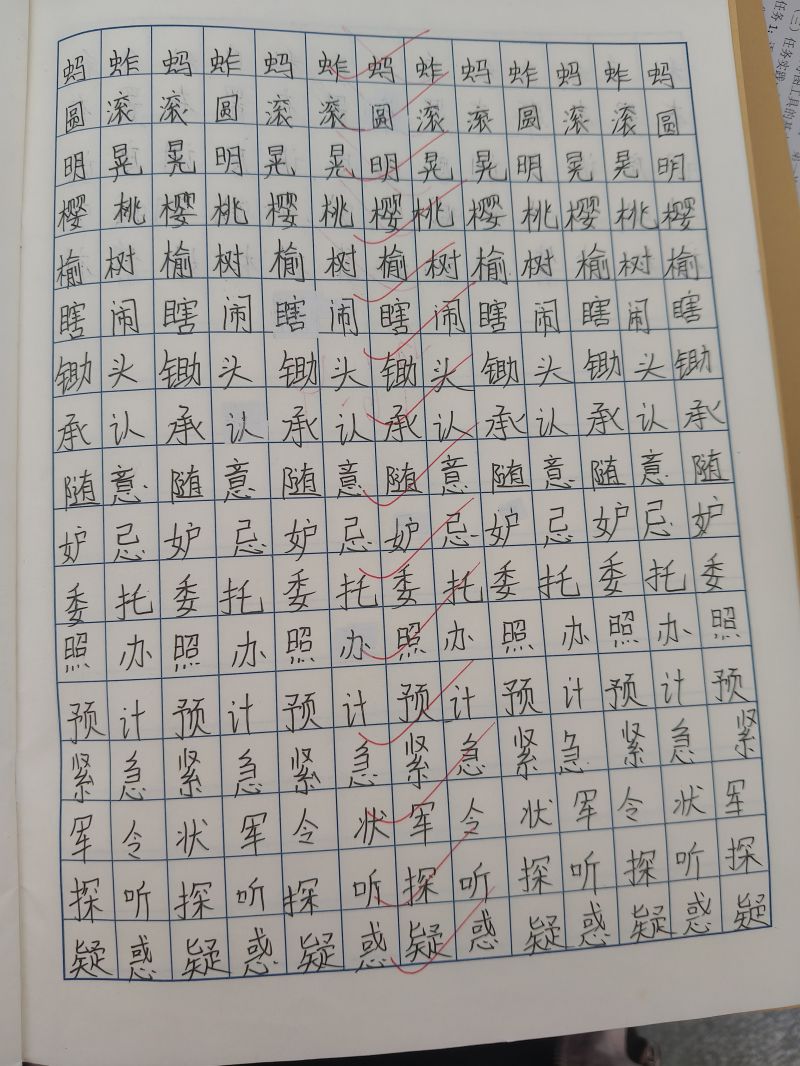 蚂蚱蚂蚱蚂蚱蚂蚱蚂蚱蚂蚱蚂
圆滚滚圆滚滚圆滚滚圆滚滚圆
明晃晃明晃晃明晃晃明晃晃明
樱桃樱桃樱桃樱桃樱桃樱桃樱
榆树榆树榆树榆树榆树榆树榆
瞎闹瞎闹瞎闹瞎闹瞎闹瞎闹瞎
锄头锄头锄头锄头锄头锄头锄
承认承认承认承认承认承认承
随意随意随意随意随意随意随
妒忌妒忌妒忌妒忌妒忌妒忌妒
委托委托委托委托委托委托委
照办照办照办照办照办照办照
预计预计预计预计预计预计预
紧急紧急紧急紧急紧急紧急紧
军令状军令状军令状军令状军
探听探听探听探听探听探听探
疑惑疑惑疑惑疑惑疑惑疑惑疑